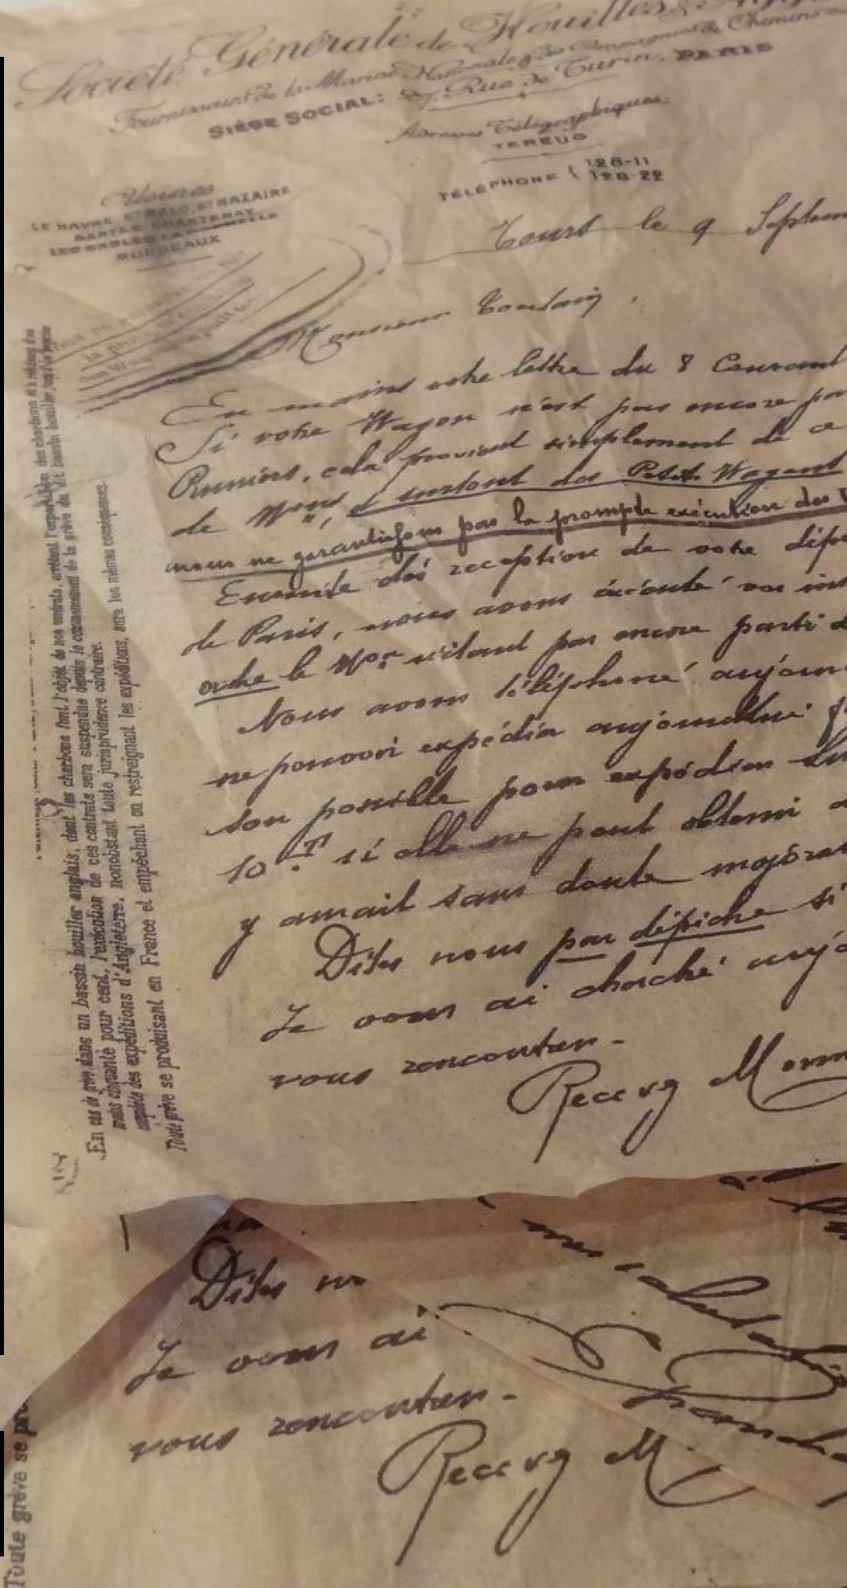 Société Générale de Houilles &
Fournisseurs de la Marine Nationale & des Compagnies de Chemins
SIÈGE SOCIAL: 27, Rue de Turin, PARIS
Adresse Télégraphique:
TEREUG
TÉLÉPHONE { 128-11
128-22
Usines
LE HAVRE, ST MALO, ST NAZAIRE
NANTES-CHANTENAY
LES SABLES LA ROCHELLE
BORDEAUX
Tours le 9 Septem
Monsieur Toulain,
En mains votre lettre du 8 Courant
Si votre Wagon n'est pas encore
Pruniers, cela provient simplement de ce
de Wons, et surtout des Petits Wagons
nous ne garantissons pas la prompte exécution des
Ensuite dès réception de votre dépe
de Paris, nous avons exécuté vos ins
ordre le Won n'étant pas encore parti
Nous avons téléphoné aujour
ne pouvoir expédier aujourd'hui
son possible pour expédier
10 T. si elle ne peut obtenir
y aurait sans doute majorat
Dites nous par dépêche si
Je vous ai cherché aujo
vous rencontrer -
Recevez Mons
En cas de grève dans un bassin houiller anglais, dont les charbons font l'objet de nos contrats, arrêtant l'expédition des charbons
mais cinquante pour cent, l'exécution de ces contrats sera suspendue depuis le commencement de la grève du dit bassin houiller
complète des expéditions d'Angleterre, nonobstant toute jurisprudence contraire.
Toute grève se produisant en France et empêchant ou restreignant les expéditions, aura les mêmes conséquences.
Dites n
Je vous ai
vous rencontrer -
Recevez M
mes salutations
Toute grève se pro